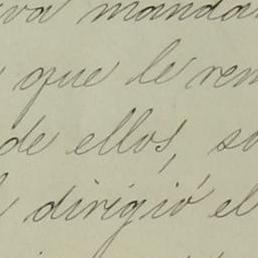 iva manda
que le rem
de ellos, so
dirigió el